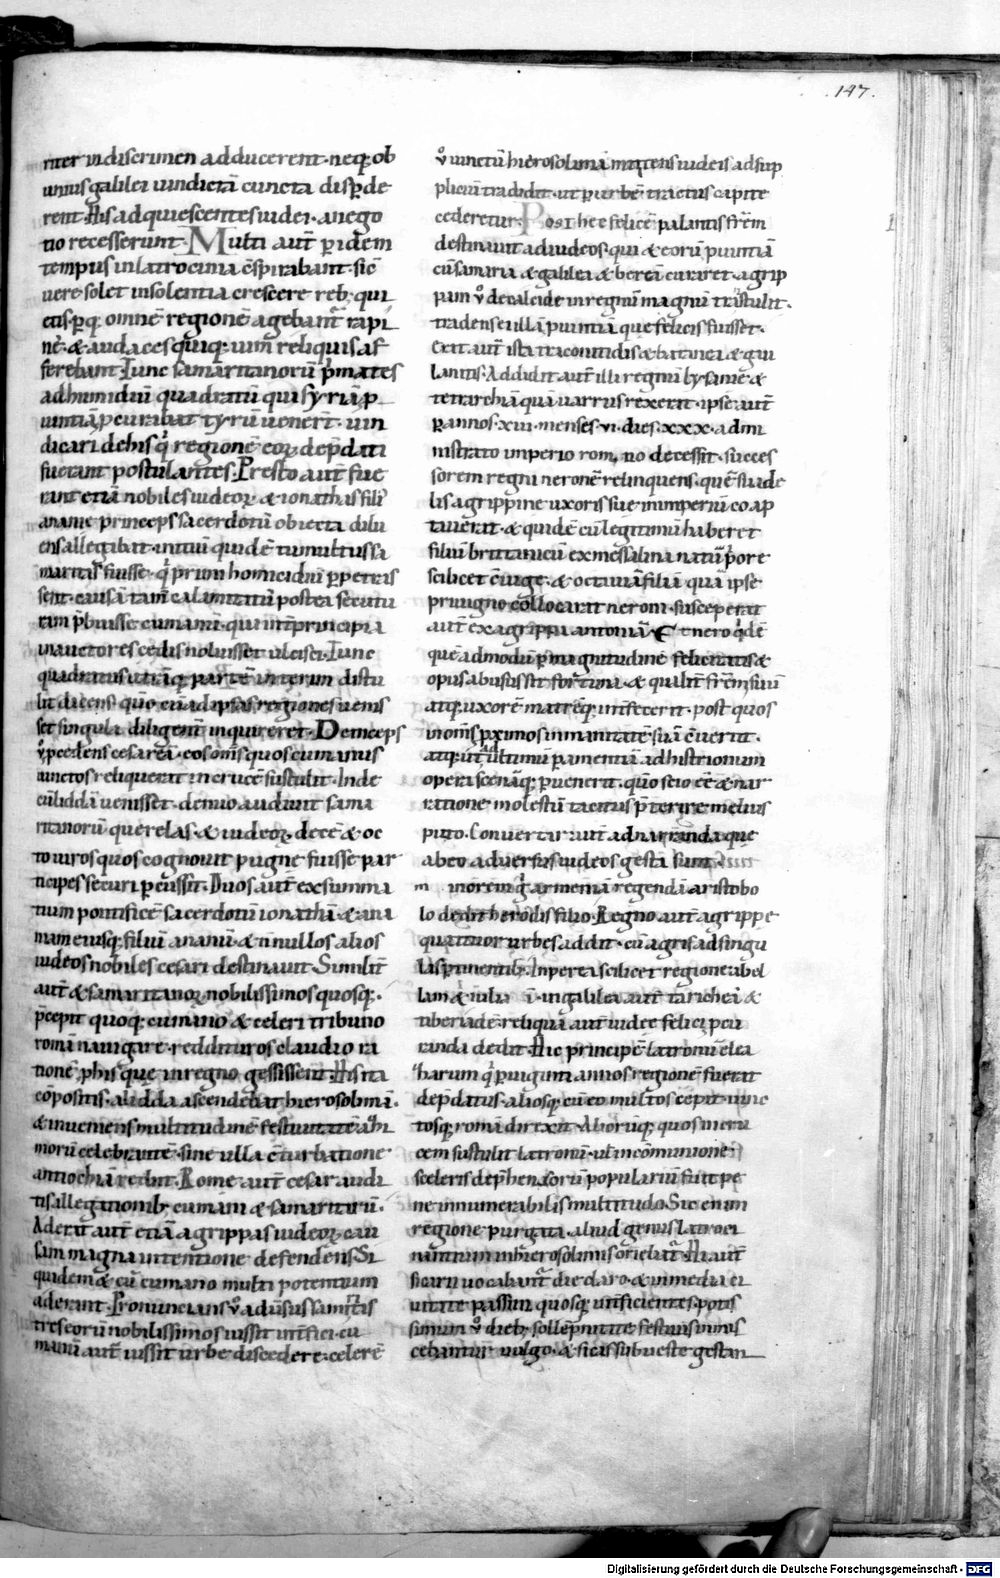 .147.
riter in discrimen adducerent · neq; ob
unius galilei uindictā cuncta disp̄de
rent. His adquiescentes iudei · a nego
tio recesserunt. Multi aut̄ p̄ idem
tempus in latrocinia c̄spirabant · sic̄
uere solet insolentia crescere reb; qui
etis. p̄q; omnē regionē agebant̄ rapi
nę · & audaces quiq; uim reliquis af
ferebant. Tunc samaritanorū p̄mates
ad humidiū quadratū qui syriā p̄
uintiā p̄curabat tyrū uenert̄ · uin
dicari de his q̄ regionē eoꝝ dep̄dati
fuerant postulantes. Presto aut̄ fue
rant etiā nobiles iudeoꝝ · & ionathas fili
ananie princeps sacerdotū obiecta dilu
ens allegabat · initiū quidē tumultus sa
maritas fuisse · q̄ primi homicidiū p̄petras
sent · causā tam̄ calamitatū postea secutu
ram p̄buisse cumanū · qui int̄ principia
in auctores cedis noluisset ulcisci. Tunc
quadratus utrāq; partē interim distu
lit dicens · quō cū ad ipsas regiones uenis
set singula diligent̄ inquireret. Deinceps
ů p̄cedens cesareā · eos om̄s quos cumanus
uinctos reliquerat in crucē sustulit. Inde
cū liddā uenisset · denuo audiuit sama
ritanorū querelas · & iudeoꝝ decē & oc
to uiros quos cognouit pugnę fuisse par
ticipes securi p̄cussit. Duos aut̄ ex summa
tium pontificē sacerdotū ionathā · & ana
niam eiusq; filiū ananū · & n̄nullos alios
iudeos nobiles cesari destinauit. Similit̄
aut̄ & samaritanoꝝ nobilissimos quosq; ·
p̄cepit quoq; cumano & celeri tribuno
romā nauigare · reddituros claudio ra
tionē p̄ his quę in regno gessissent. His ita
cōpositis · a lidda ascendebat hierosolimā ·
& inueniens multitudinē festiuitatē azi
morū celebrantē · sine ulla c̄turbatione
antiochiā rediit. Rome aut̄ cesar audi
tis allegationib; cumani & samaritarū ·
Aderat aut̄ etiā agrippas iudeoꝝ cau
sam magna intentione defendens. Si
quidem & cū cumano multi potentium
aderant. Pronuncians ů adūsus samaritas
tres eorū nobilissimos iussit int̄fici. cu
manū aut̄ iussit urbe discedere · celerē
ů uinctū hierosolimā mittens iudeis ad sup
plicium tradidit · ut p̄ urbē tractus capite
cederetur. Post hec felicē palantis fr̄em
destinauit ad iudeos · qui & eorū p̄uintiā
cū samaria & galilea & bereā curaret · agrip
pam ů de calcide in regnū magnū trāstulit ·
tradens ei illā p̄uintiā que felicis fuisset ·
Erat aut̄ ista traconitidis & batanea & gau
lanitis. Addidit aut̄ illi regnū lysanie &
tetrarchiā quā uarrus rexerat · ipse aut̄
p̄ annos · xiii · menses · vi · dies · xxx · admi
nistrato imperio romano decessit · succes
sorem regni neronē relinquens · quē suade
lis agrippine uxoris sue in imperiū coap
tauerat · & quidē cū legitimū haberet
filiū brittanicū ex messalina natū p̄ore
scilicet c̄iuge · & octauiā filiā quā ipse
priuigno collocarat neroni · susceperat
aut̄ ex agrippa antoniā. Et nero q̄dē
quē admodū p̄ magnitudinē felicitatis &
opus abusus sit fortuna · & qualit̄ fr̄em suū
atq; uxorē matrēq; int̄fecerit · post quos
in om̄s p̄ximos in manitatē suā c̄uertit ·
atq; ut ad ultimū p̄ amentiā ad histrionum
opera scenāq; p̄uenerit · quō scio eē & nar
ratione molestū tacitus p̄terire melius
puto. Conuertar aut̄ ad narranda que
ab eo aduersus iudeos gesta sunt.
minorem q̄ armeniā regendā aristobo
lo dedit herodis filio. Regno aut̄ agrippe
quattuor urbes addit · cū agris ad singu
las p̄tinentib;. In perea scilicet regione abel
lam & iuliadē · in galilea aut̄ taricheā &
tiberiadē · reliquā aut̄ iudee felici p̄cu
randa dedit. Hic principē latronū elea
harum q̄ p̄ uiginti annos regionē fuerat
dep̄datus · aliosq; cū eo multos cepit · uinc
tosq; romā direxit. Aliorūq; quos in cru
cem sustulit latronū · ul̄ in cōmunionē
sceleris dep̄hensorū popularium fuit pe
ne innumerabilis multitudo. Sic enim
regione purgata · aliud genus latroci
nantium in hierosolimis oriebat̄. Hi aut̄
sicarii uocabant̄ die claro · & in media ci
uitate passim quosq; int̄ficientes. potis
simum ů dieb; sollēpnitate festiuis mis
cebantur uulgo · & sicas sub ueste gestan
Digitalisierung gefördert durch die Deutsche Forschungsgemeinschaft - DFG